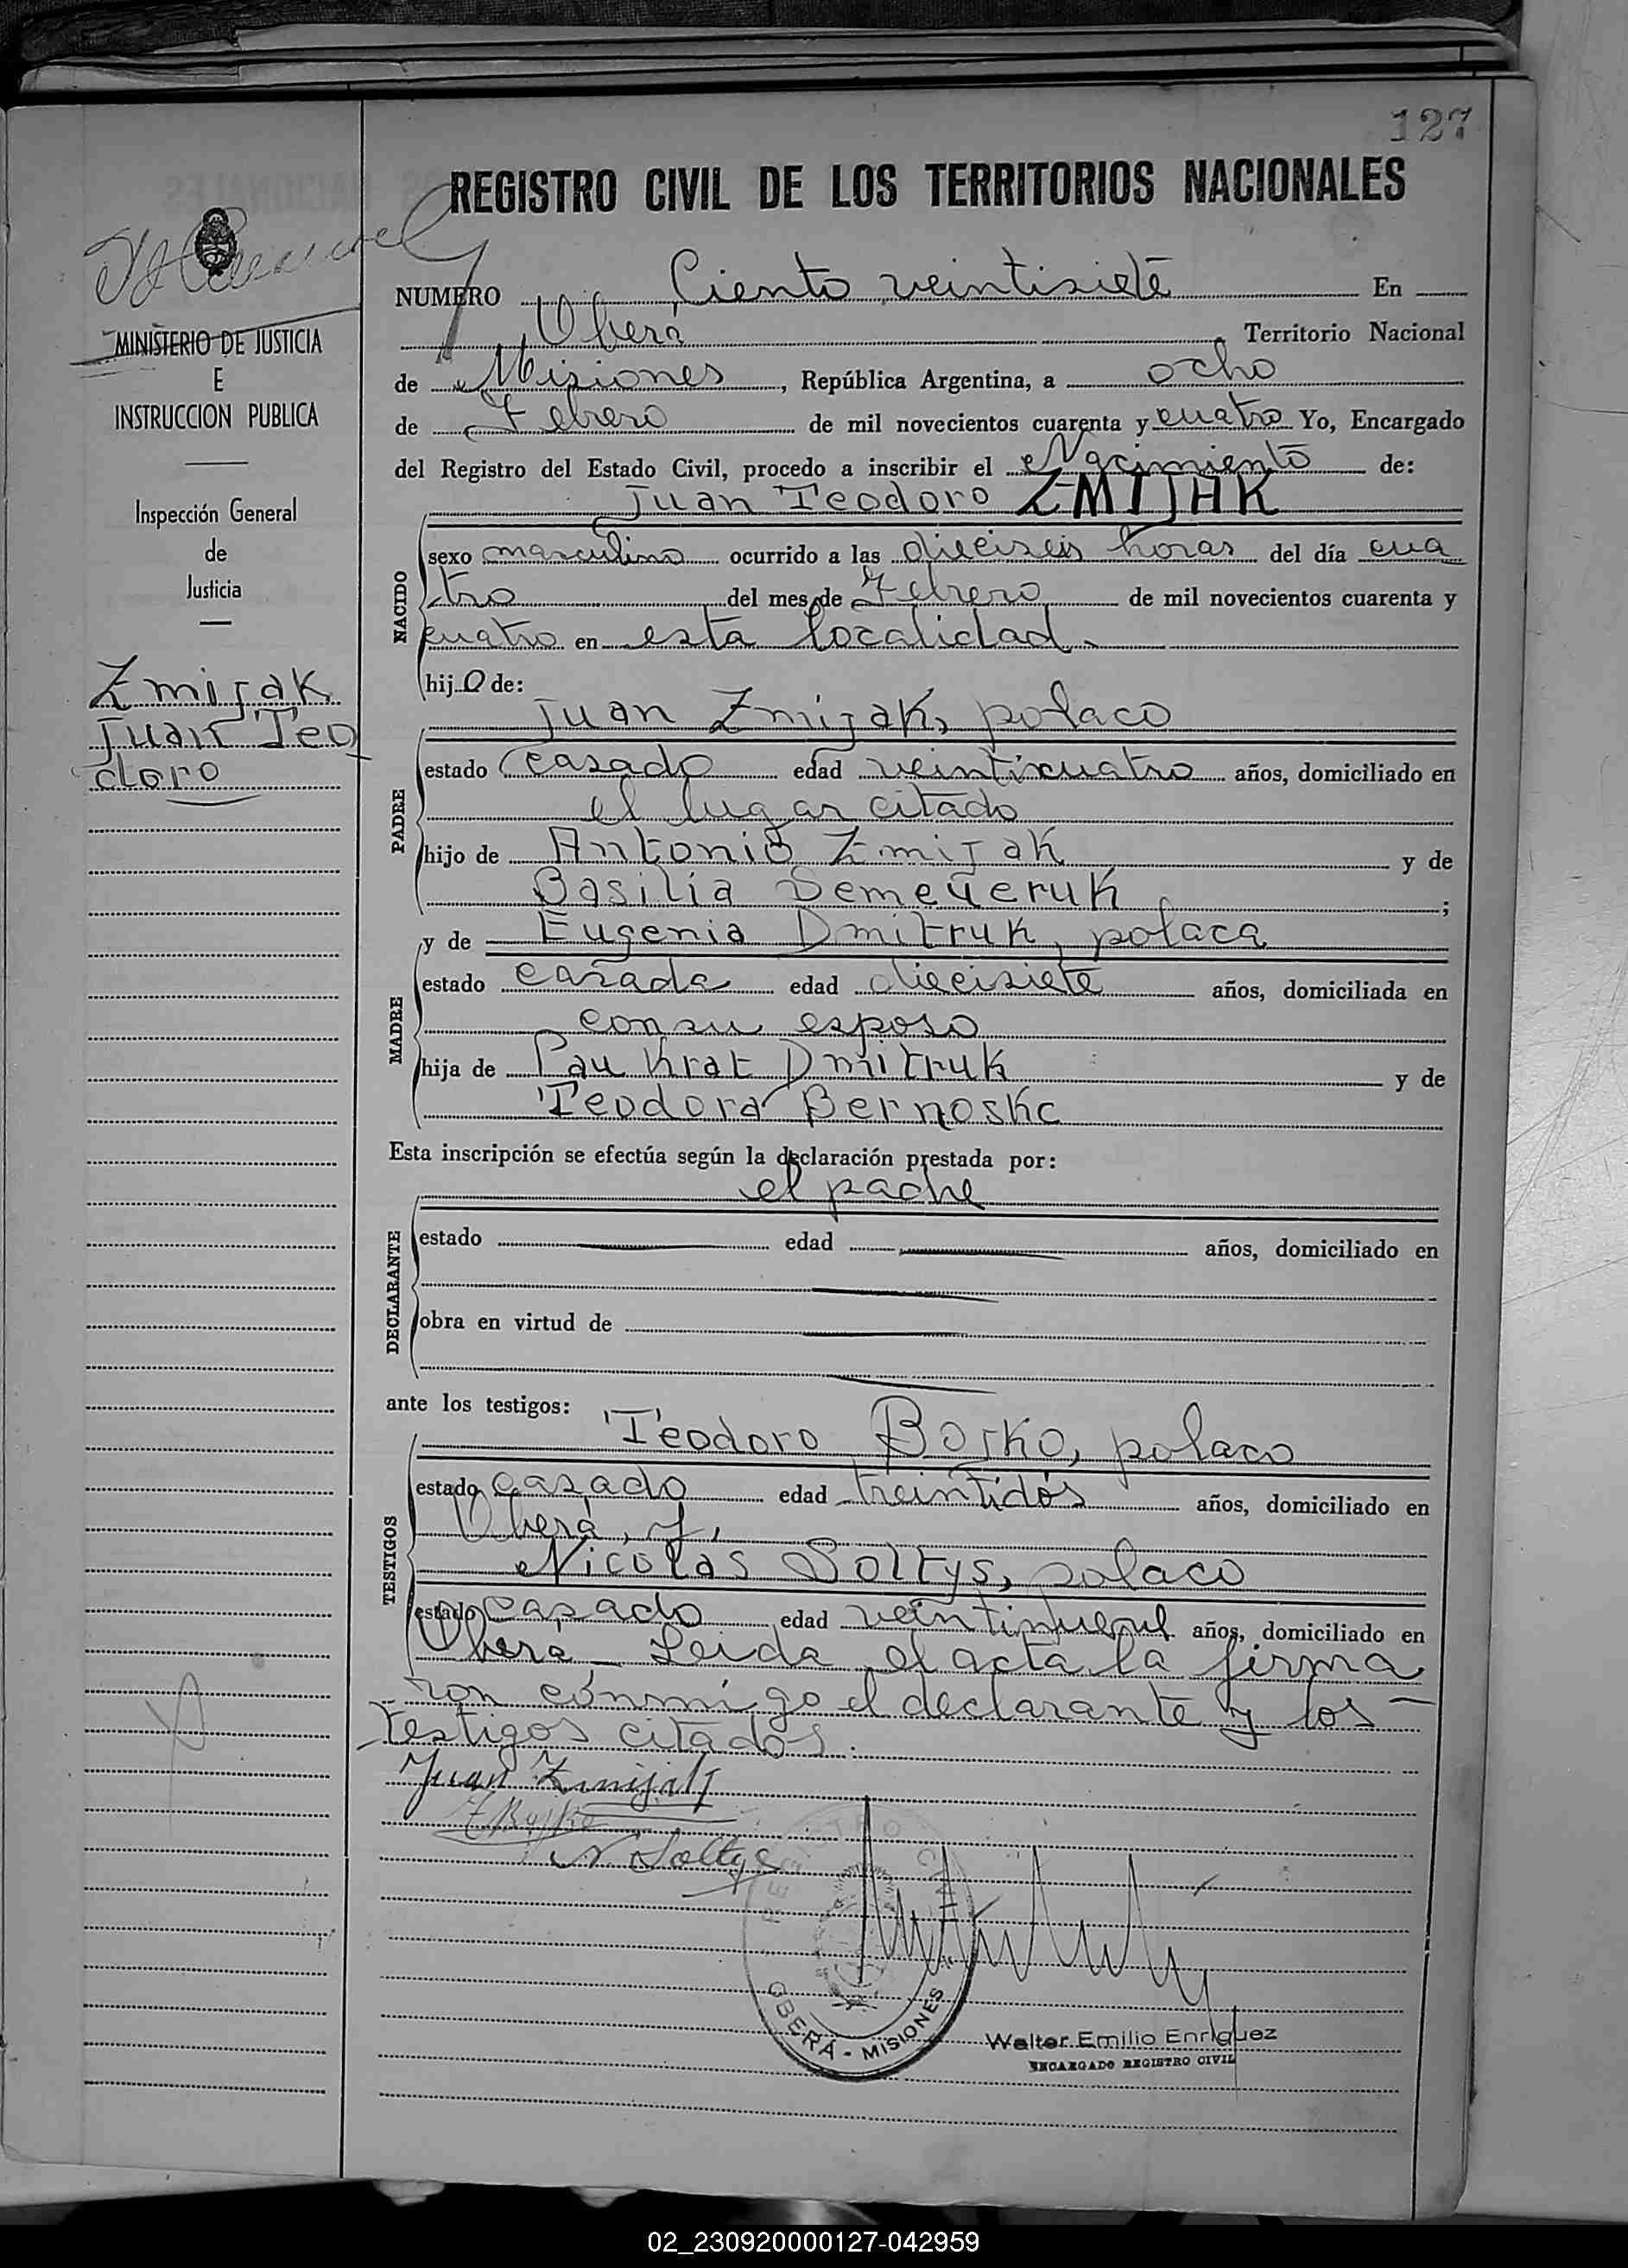 127
REGISTRO CIVIL DE LOS TERRITORIOS NACIONALES
MINISTERIO DE JUSTICIA
E
INSTRUCCION PUBLICA
Inspección General
de
Justicia
Zmijak
Juan Teo
doro
NUMERO Ciento veintisiete En
Oberá, Territorio Nacional
de Misiones, República Argentina, a ocho
de Febrero de mil novecientos cuarenta y cuatro Yo, Encargado
del Registro del Estado Civil, procedo a inscribir el Nacimiento de:
Juan Teodoro ZMIJAK
NACIDO
sexo masculino ocurrido a las dieciseis horas del día cua
tro del mes de Febrero de mil novecientos cuarenta y
cuatro en esta localidad.
hijo de:
Juan Zmijak, polaco
PADRE
estado casado edad veinticuatro años, domiciliado en
el lugar citado
hijo de Antonio Zmijak y de
Basilia ;
y de Eugenia Dmitruk, polaca
MADRE
estado casada edad diecisiete años, domiciliada en
con su esposo
hija de Pau Krat Dmitruk y de
Teodora Bernoskc
Esta inscripción se efectúa según la declaración prestada por:
el padre
DECLARANTE
estado edad años, domiciliado en
obra en virtud de
ante los testigos:
Teodoro Bojko, polaco
TESTIGOS
estado casado edad treintidós años, domiciliado en
Oberá, y,
Nicolás Soltys, polaco
estado casado edad veintinueve años, domiciliado en
Oberá - Leida el acta la firma
ron conmigo el declarante y los
testigos citados.
Juan Zmijak
N Soltys
REGISTRO CIVIL
OBERÁ - MISIONES
Walter Emilio Enriquez
ENCARGADO REGISTRO CIVIL
02_230920000127-042959